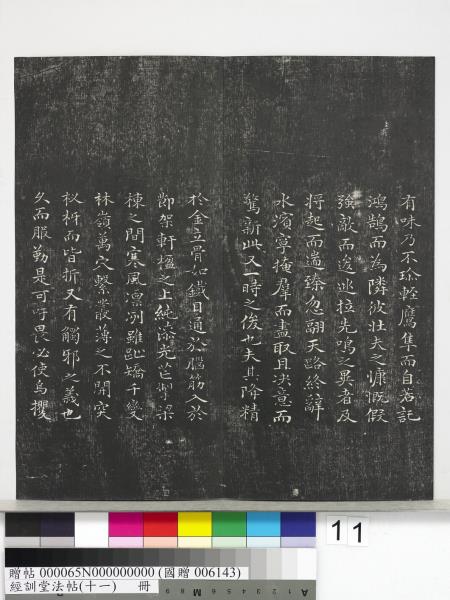 有味乃不珍輕鷹隼而自若託
鴻鵠而為隣彼壯夫之慷慨假
強敵而逡巡拉先鳴之異者及
將起而遄臻忽翺天路終辭
水濱寧掩羣而盡取且决意而
驚新此又一時之俊也夫其降精
於金立骨如鐵目通於腦筋入於
節架軒楹之上純漆光芒掣梁
棟之間寒風凛冽雖趾矯千變
林嶺萬穴繫叢薄之不開突
杈枒而皆折又有觸邪之義也
久而服勤是可吁畏必使烏攫
11
贈帖 000065N000000000 (國贈 006143)
經訓堂法帖(十一) 冊